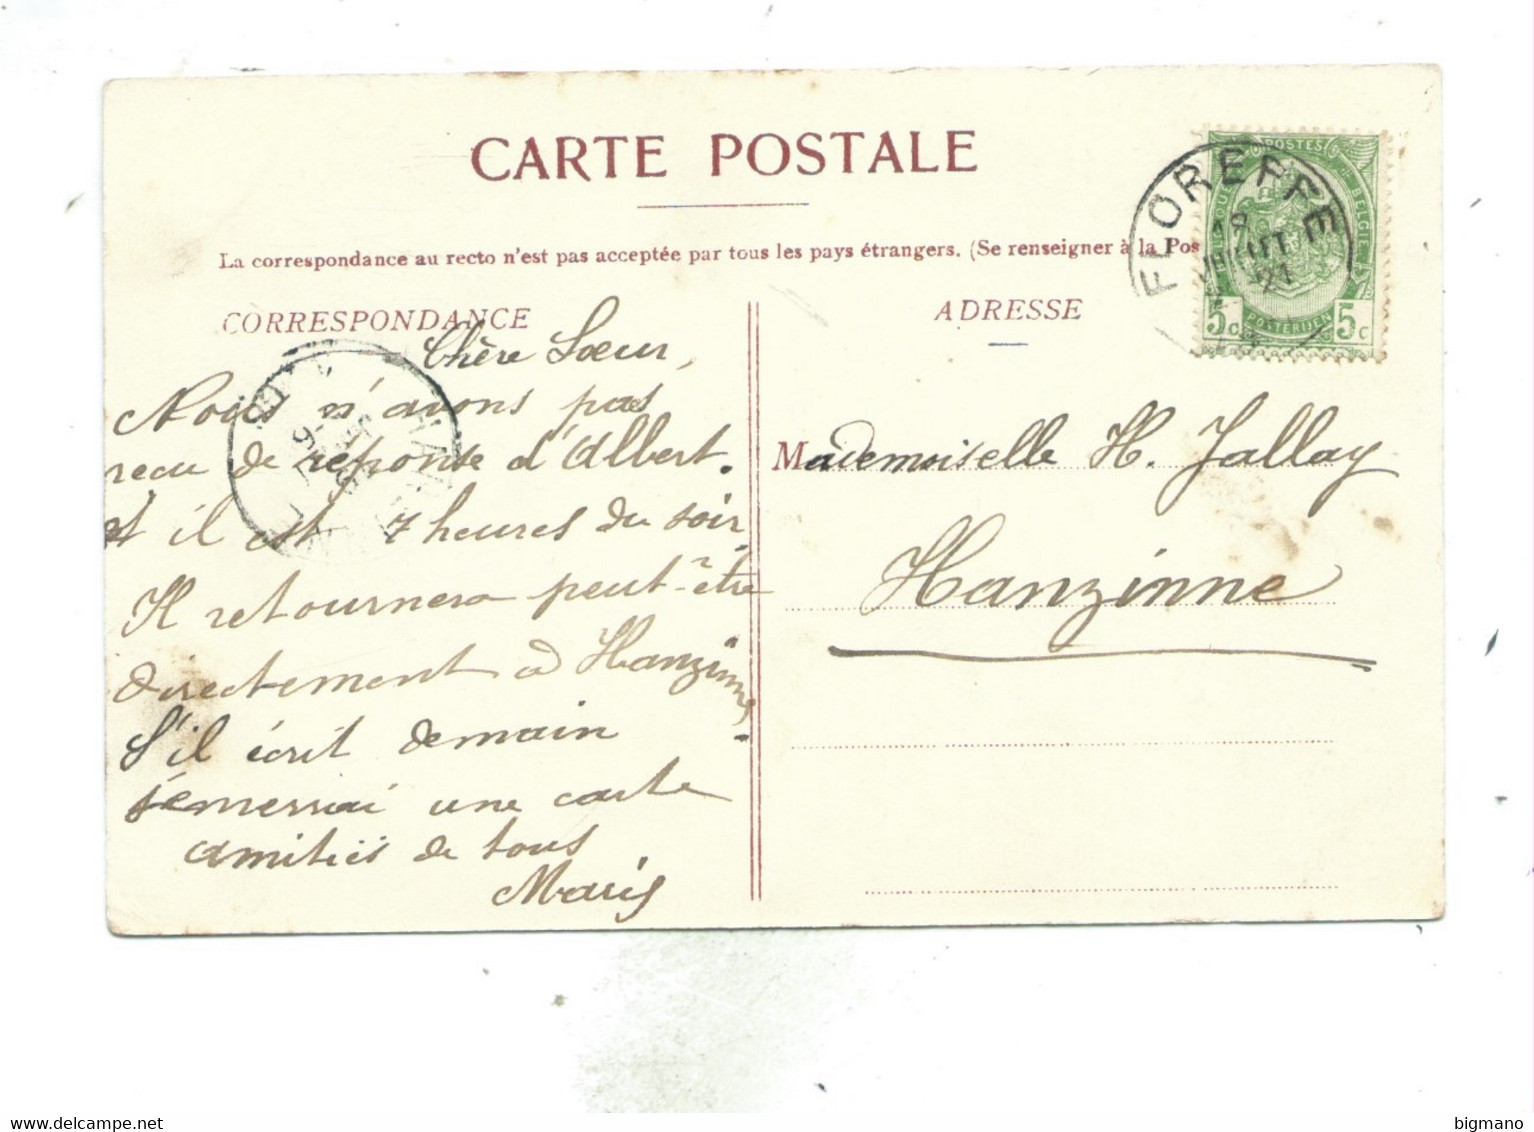 CARTE POSTALE
La correspondance au recto n'est pas acceptée par tous les pays étrangers. (Se renseigner à la Pos
CORRESPONDANCE
Chère Sœur,
Nous n'avons pas
recu de réponse d'Albert.
et il est 7 heures du soir
Il retournera peut-être
directement à Hanzinne
S'il écrit demain
j'enverrai une carte
amitiés de tous
Marie
ADRESSE
Mademoiselle H. Jallay
Hanzinne
FLOREFFE
19
JUILLET
21
POSTES
BELGIQUE
BELGIE
5c
POSTERIJEN
5c
bigmano